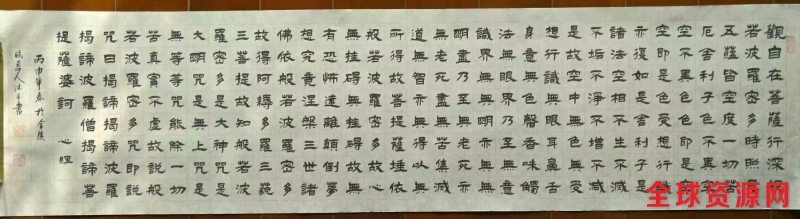 觀自在菩薩行深般
若波羅密多時照見
五蘊皆空度一切苦
厄舍利子色不異空
空不異色色即是空
空即是色受想行識
亦復如是舍利子是
諸法空相不生不滅
不垢不淨不增不減
是故空中無色無受
想行識無眼耳鼻舌
身意無色聲香味觸
法無眼界乃至無意
識界無無明亦無無
明盡乃至無老死亦
無老死盡無苦集滅
道無智亦無得以無
所得故菩提薩埵依
般若波羅密多故心
無挂碍無挂碍故無
有恐怖遠離顛倒夢
想究竟涅槃三世諸
佛依般若波羅密多
故得阿耨多羅三藐
三菩提故知般若波
羅密多是大神咒是
大明咒是無上咒是
無等等咒能除一切
苦真實不虛故說般
若波羅密多咒即說
咒曰揭諦揭諦波羅
揭諦波羅僧揭諦菩
提薩婆訶 心經
丙申年春於金陵
全球资源网